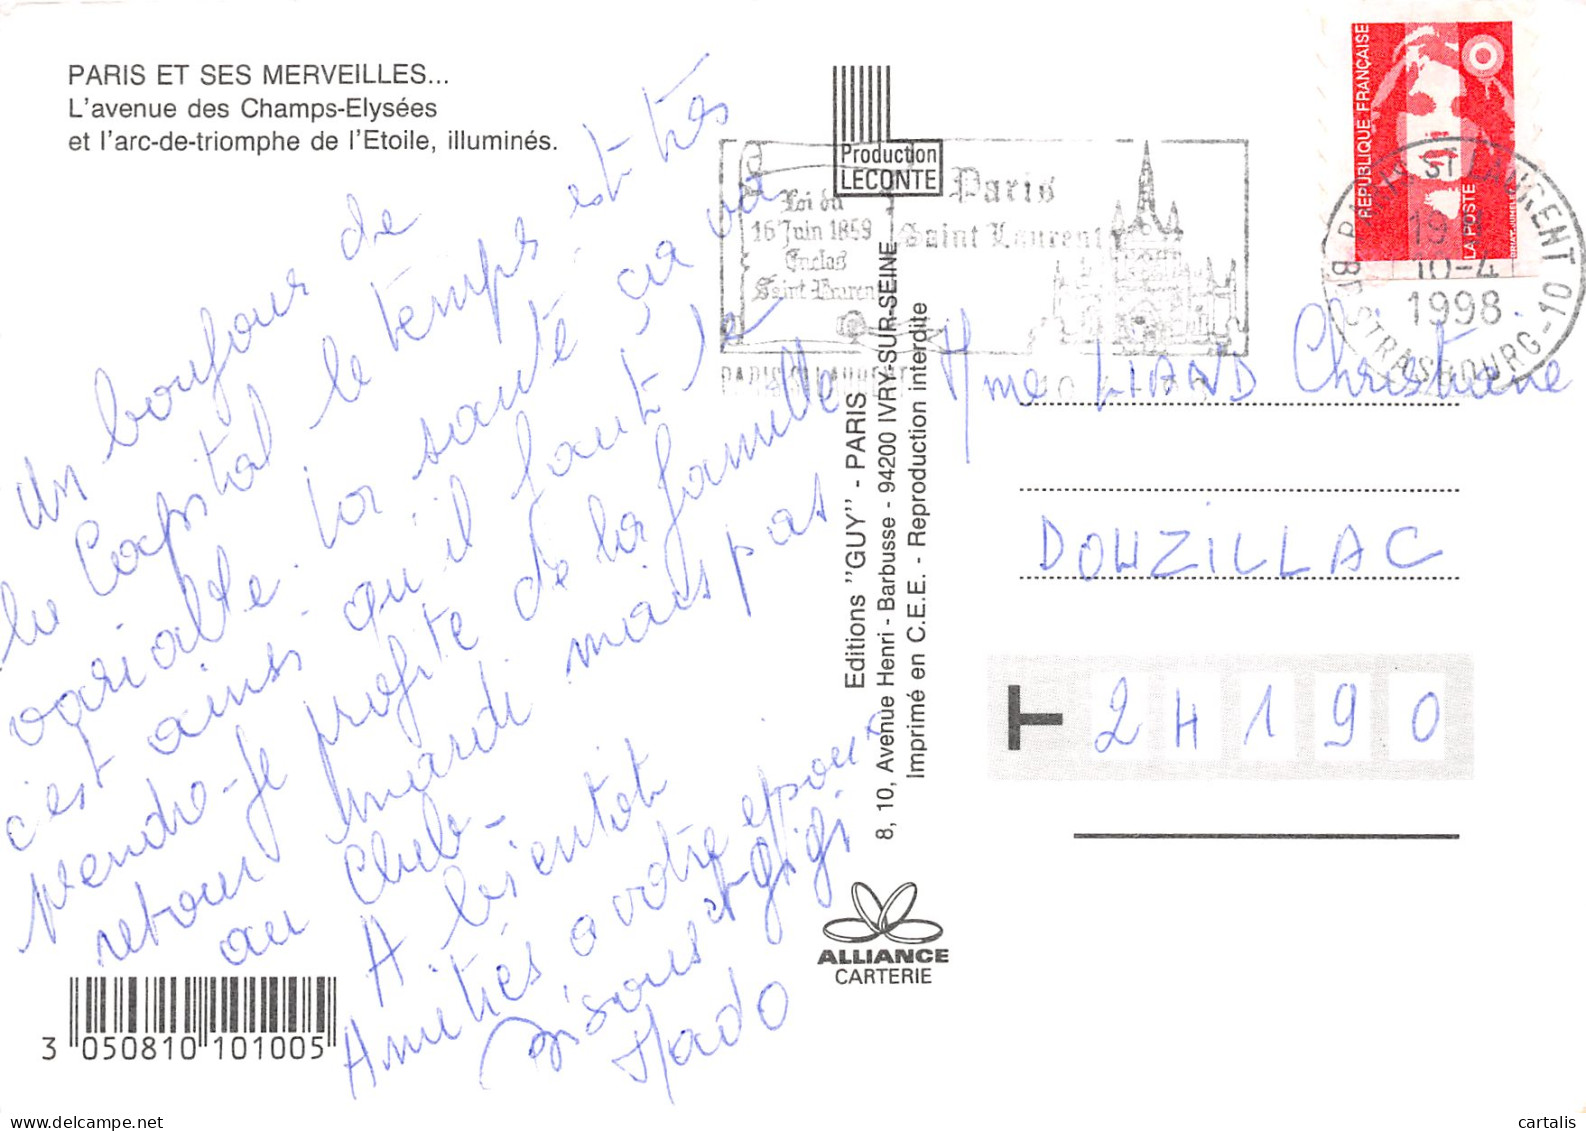 PARIS ET SES MERVEILLES...
L'avenue des Champs-Elysées
et l'arc-de-triomphe de l'Etoile, illuminés.
un bonjour de
la Capital le temps est très
variable. la santé ça va
c'est ainsi qu'il faut le
prendre - Je profite de la famille
retour mardi mais pas
au Club -
A bientôt
Amitiés a votre epoux
bisous et gigi
Mado
3 050810 101005
Production
LECONTE
Editions "GUY" - PARIS
8, 10, Avenue Henri - Barbusse - 94200 IVRY-SUR-SEINE
Imprimé en C.E.E. - Reproduction interdite
ALLIANCE
CARTERIE
Loi du
16 Juin 1859
Enclos
Saint Laurent
Paris
Saint Laurent
PARIS ST LAURENT
REPUBLIQUE FRANÇAISE
LA POSTE
PARIS ST LAURENT - 10
19 H
10-4
1998
BD STRASBOURG
Mme LIARD Christiane
DOUZILLAC
T 24190
cartalis
delcampe.net